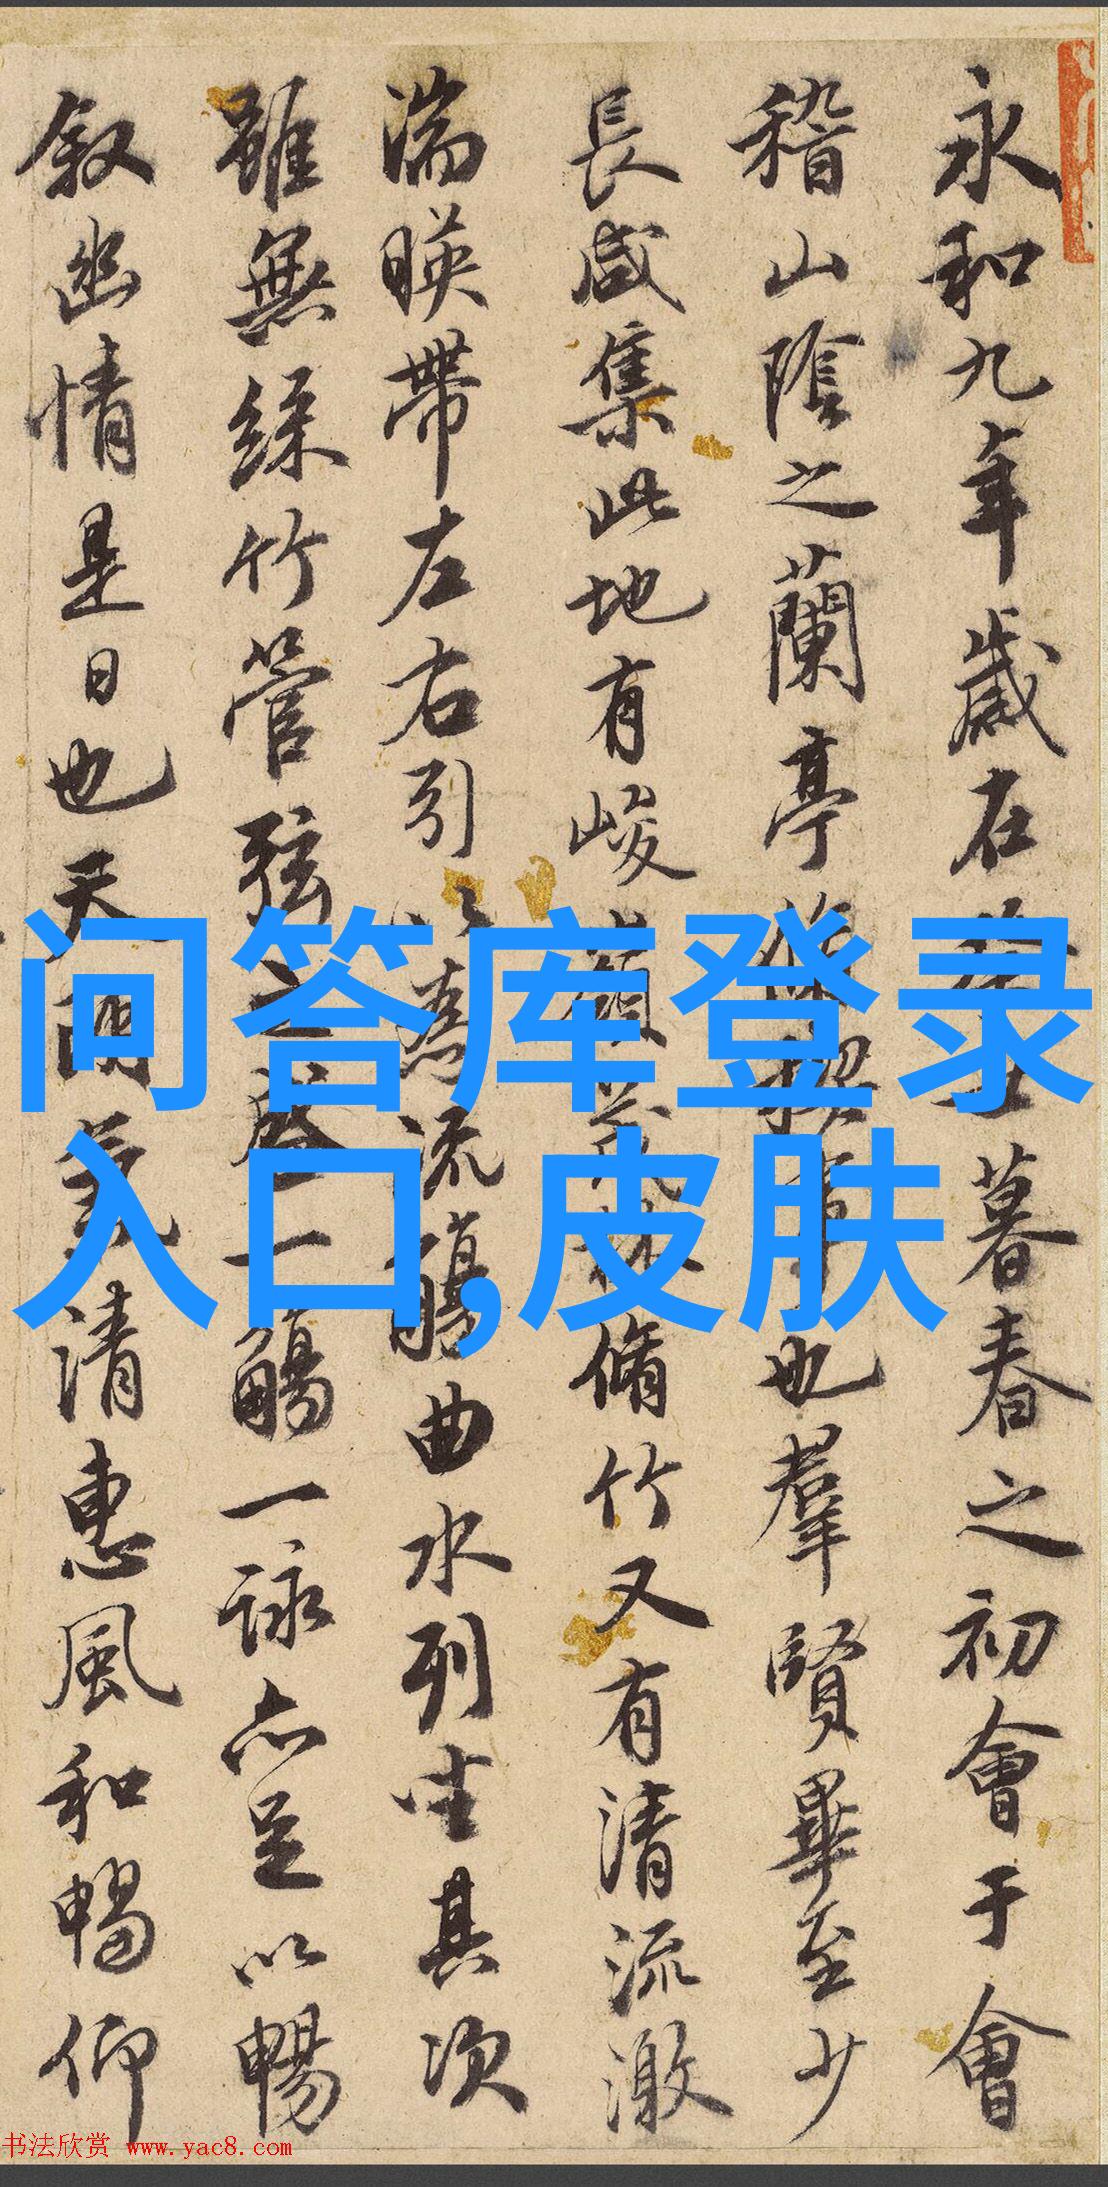 永和九年歲在癸丑暮春之初會于會
稽山陰之蘭亭脩禊事也羣賢畢至少
長咸集此地有峻領茂林脩竹又有清流激
湍暎帶左右引以為流觴曲水列坐其次
雖無絲竹管弦之盛一觴一詠亦足以暢
叙幽情是日也天朗氣清惠風和暢仰
问答库登录
入口,皮肤
书法欣赏 www.yac8.com